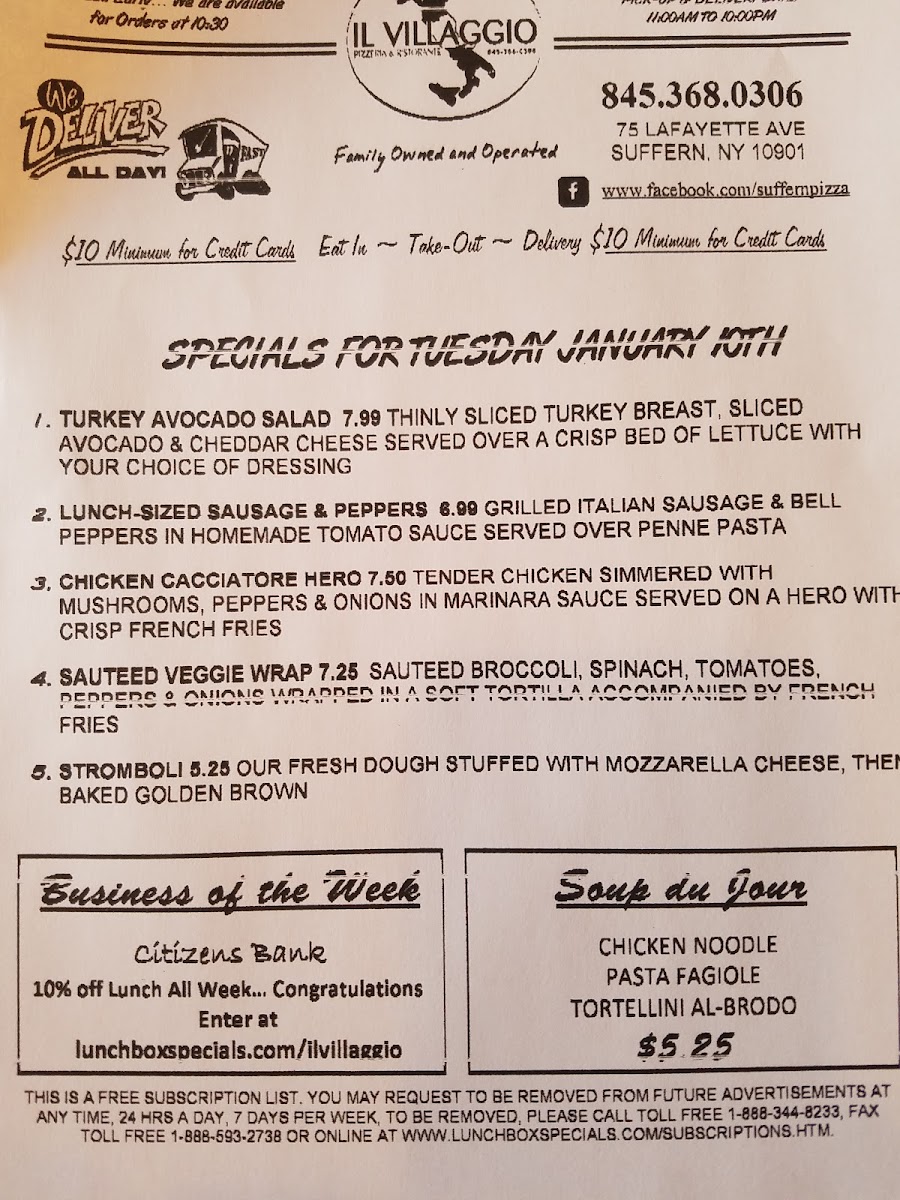 We are available
for Orders at 10:30
IL VILLAGGIO
PIZZERIA & RISTORANTE
11:00AM TO 10:00PM
We
DELIVER
ALL DAY!
FAST
Family Owned and Operated
845.368.0306
75 LAFAYETTE AVE
SUFFERN, NY 10901
f www.facebook.com/suffernpizza
$10 Minimum for Credit Cards Eat In ~ Take-Out ~ Delivery $10 Minimum for Credit Cards
SPECIALS FOR TUESDAY JANUARY 10TH
1. TURKEY AVOCADO SALAD 7.99 THINLY SLICED TURKEY BREAST, SLICED
AVOCADO & CHEDDAR CHEESE SERVED OVER A CRISP BED OF LETTUCE WITH
YOUR CHOICE OF DRESSING
2. LUNCH-SIZED SAUSAGE & PEPPERS 6.99 GRILLED ITALIAN SAUSAGE & BELL
PEPPERS IN HOMEMADE TOMATO SAUCE SERVED OVER PENNE PASTA
3. CHICKEN CACCIATORE HERO 7.50 TENDER CHICKEN SIMMERED WITH
MUSHROOMS, PEPPERS & ONIONS IN MARINARA SAUCE SERVED ON A HERO WITH
CRISP FRENCH FRIES
4. SAUTEED VEGGIE WRAP 7.25 SAUTEED BROCCOLI, SPINACH, TOMATOES,
PEPPERS & ONIONS WRAPPED IN A SOFT TORTILLA ACCOMPANIED BY FRENCH
FRIES
5. STROMBOLI 5.25 OUR FRESH DOUGH STUFFED WITH MOZZARELLA CHEESE, THEN
BAKED GOLDEN BROWN
Business of the Week
Citizens Bank
10% off Lunch All Week... Congratulations
Enter at
lunchboxspecials.com/ilvillaggio
Soup du Jour
CHICKEN NOODLE
PASTA FAGIOLE
TORTELLINI AL-BRODO
$5.25
THIS IS A FREE SUBSCRIPTION LIST. YOU MAY REQUEST TO BE REMOVED FROM FUTURE ADVERTISEMENTS AT
ANY TIME, 24 HRS A DAY, 7 DAYS PER WEEK, TO BE REMOVED, PLEASE CALL TOLL FREE 1-888-344-8233, FAX
TOLL FREE 1-888-593-2738 OR ONLINE AT WWW.LUNCHBOXSPECIALS.COM/SUBSCRIPTIONS.HTM.